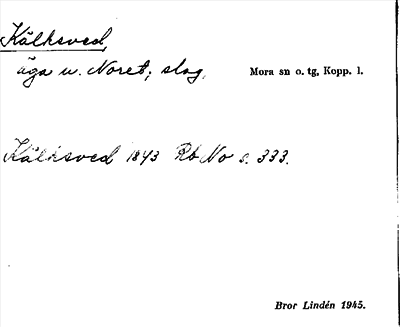 Kälksved,
äga u. Noret; slog.
Mora sn o. tg, Kopp. l.
Kälksved 1843 Rb No s. 333.
Bror Lindén 1945.